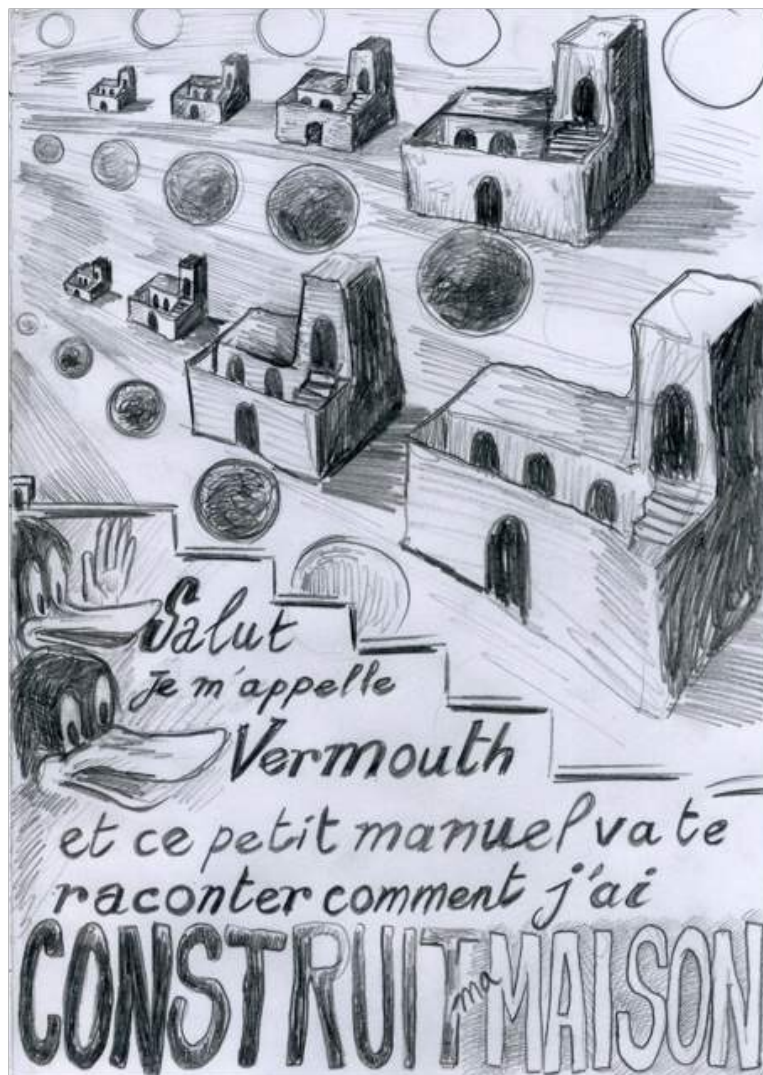 Salut
je m'appelle
Vermouth
et ce petit manuel va te
raconter comment j'ai
CONSTRUIT ma MAISON